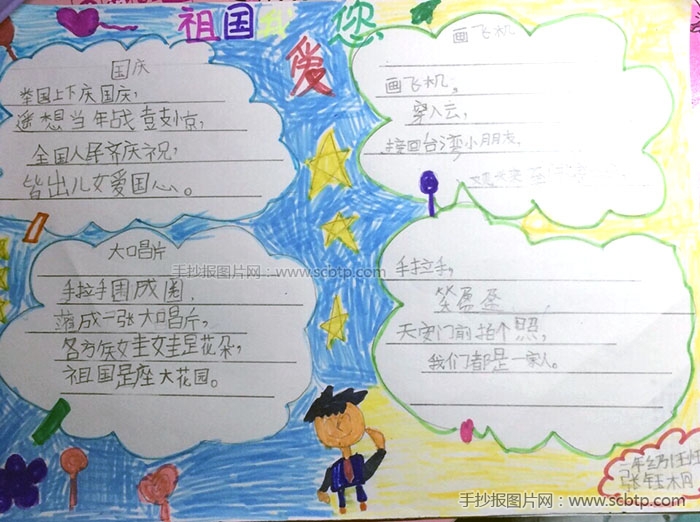 祖国 爱您
国庆
举国上下庆国庆，
遥想当年战鼓惊，
全国人民齐庆祝，
皆出儿女爱国心。
画飞机
画飞机，
穿入云，
接回台湾小朋友，
大口唱片
手拉手围成圈，
成一张大口唱片，
各方 娃娃是花朵，
祖国是座大花园。
手拉手，
笑盈盈，
天安门前拍个照，
我们都是一家人。
手抄报图片网：www.scbtp.com
二年级
张
手抄报图片网：www.scbtp.com